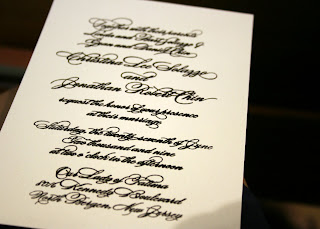 Together with their parents
and
Christina Lee
and
Jonathan Robert Chin
request the honor of your presence
at their marriage
Saturday, the twenty-seventh of June
Two thousand and nine
at two o'clock in the afternoon
Our Lady of Fatima
Kennedy Boulevard
North Bergen, New Jersey